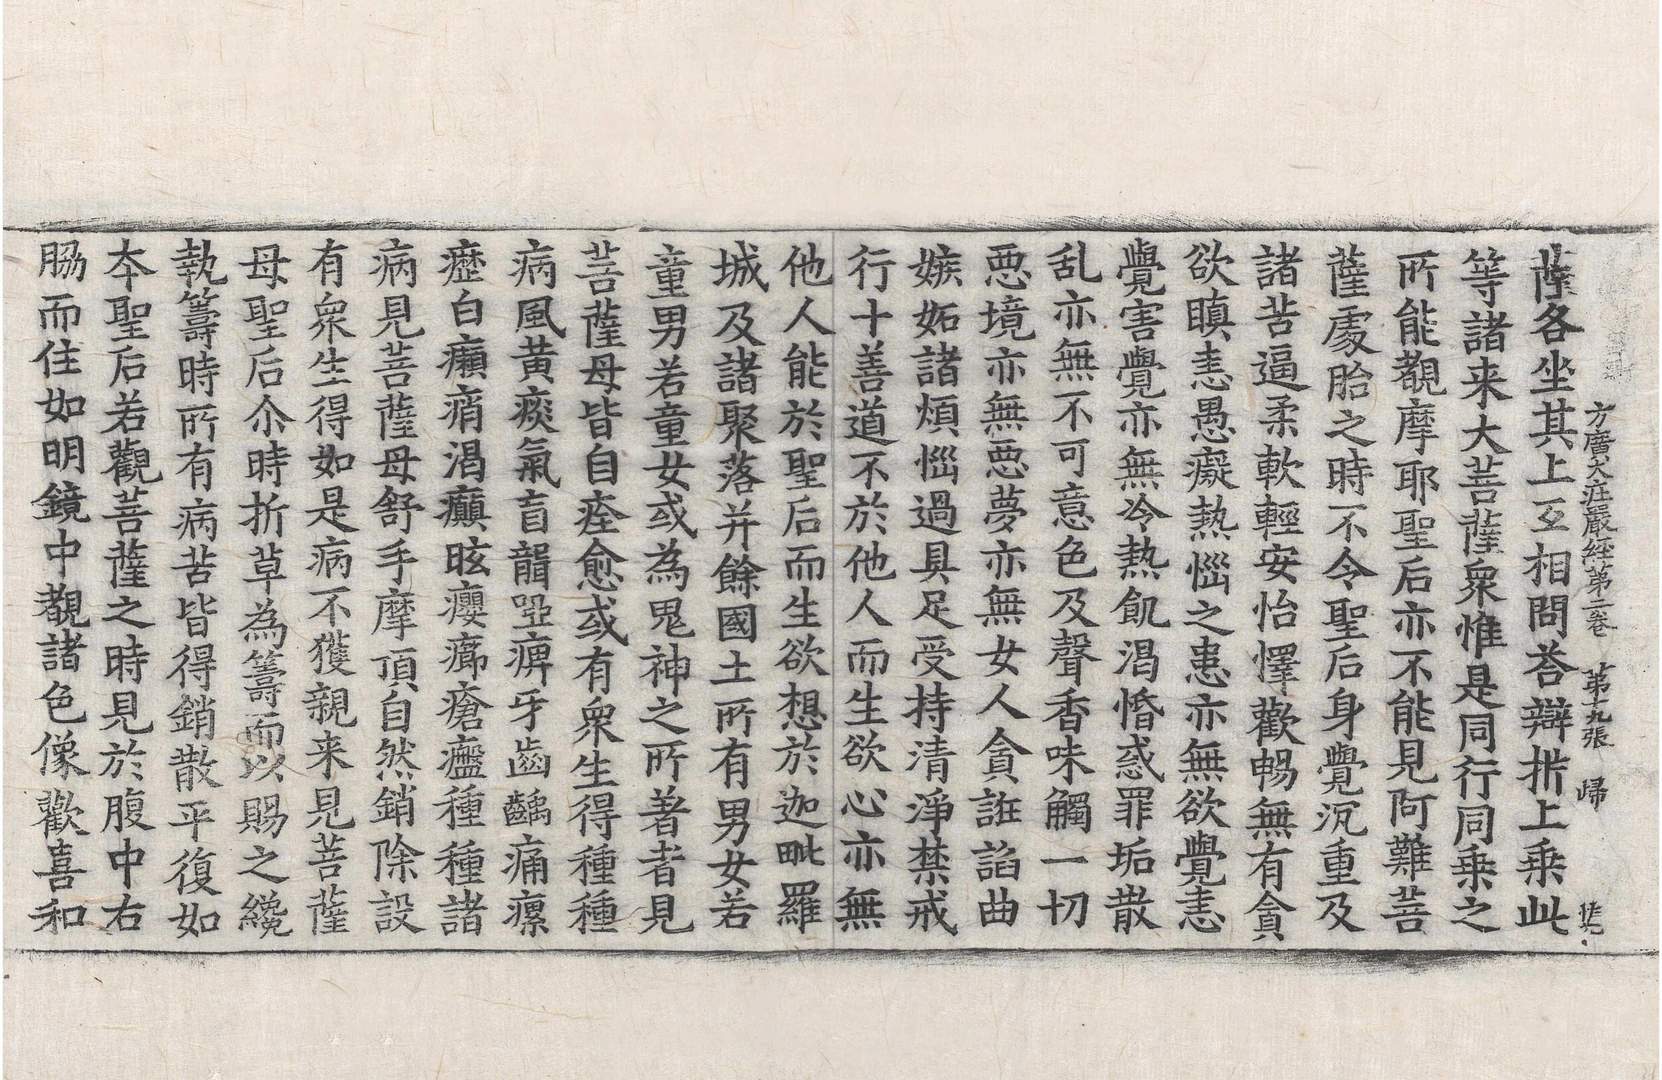 方廣大莊嚴經第二卷 第十九張 歸
薩各坐其上互相問荅辯析上乗此
等諸来大菩薩衆惟是同行同乗之
所能覩摩耶聖后亦不能見阿難菩
薩處胎之時不令聖后身覺沉重及
諸苦逼柔軟輕安怡懌歡暢無有貪
欲瞋恚愚癡熱惱之患亦無欲覺恚
覺害覺亦無冷熱飢渴惛惑罪垢散
乱亦無不可意色及聲香味觸一切
惡境亦無惡夢亦無女人貪誑諂曲
嫉妬諸煩惱過具足受持清淨禁戒
行十善道不於他人而生欲心亦無
他人能於聖后而生欲想於迦毗羅
城及諸聚落并餘國土所有男女若
童男若童女或為鬼神之所著者見
菩薩母皆自痊愈或有衆生得種種
病風黄痰氣盲聾瘂痺牙齒齲痛瘰
癧白癩痟渴癲眩癭㿈瘡𤻀種種諸
病見菩薩母舒手摩頂自然銷除設
有衆生得如是病不獲親来見菩薩
母聖后尒時折草為籌而以賜之纔
執籌時所有病苦皆得銷散平復如
本聖后若觀菩薩之時見於腹中右
脇而住如明鏡中覩諸色像歡喜和